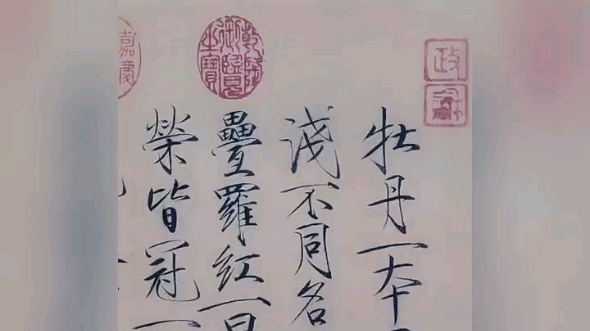 牡丹一本
淺不同名
疊羅紅一曰
榮皆冠一
政
乾隆御覽之寶
嘉慶